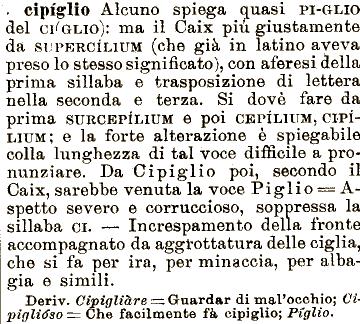 . cipíglio Alcuno spiega quasi PI-GLIO
del CI(GLIO): ma il Caix più giustamente
da SUPERCÍLIUM (che già in latino aveva
preso lo stesso significato), con aferesi della
prima sillaba e trasposizione di lettera
nella seconda e terza. Si dovè fare da
prima SURCEPÍLIUM e poi CEPÍLIUM, CIPÍ-
LIUM; e la forte alterazione è spiegabile
colla lunghezza di tal voce difficile a pro-
nunziare. Da Cipiglio poi, secondo il
Caix, sarebbe venuta la voce Piglio = A-
spetto severo e corruccioso, soppressa la
sillaba CI. — Increspamento della fronte
accompagnato da aggrottatura delle ciglia,
che si fa per ira, per minaccia, per alba-
gia e simili.
Deriv. Cipigliàre = Guardar di mal'occhio; Ci-
piglióso = Che facilmente fà cipiglio; Píglio.